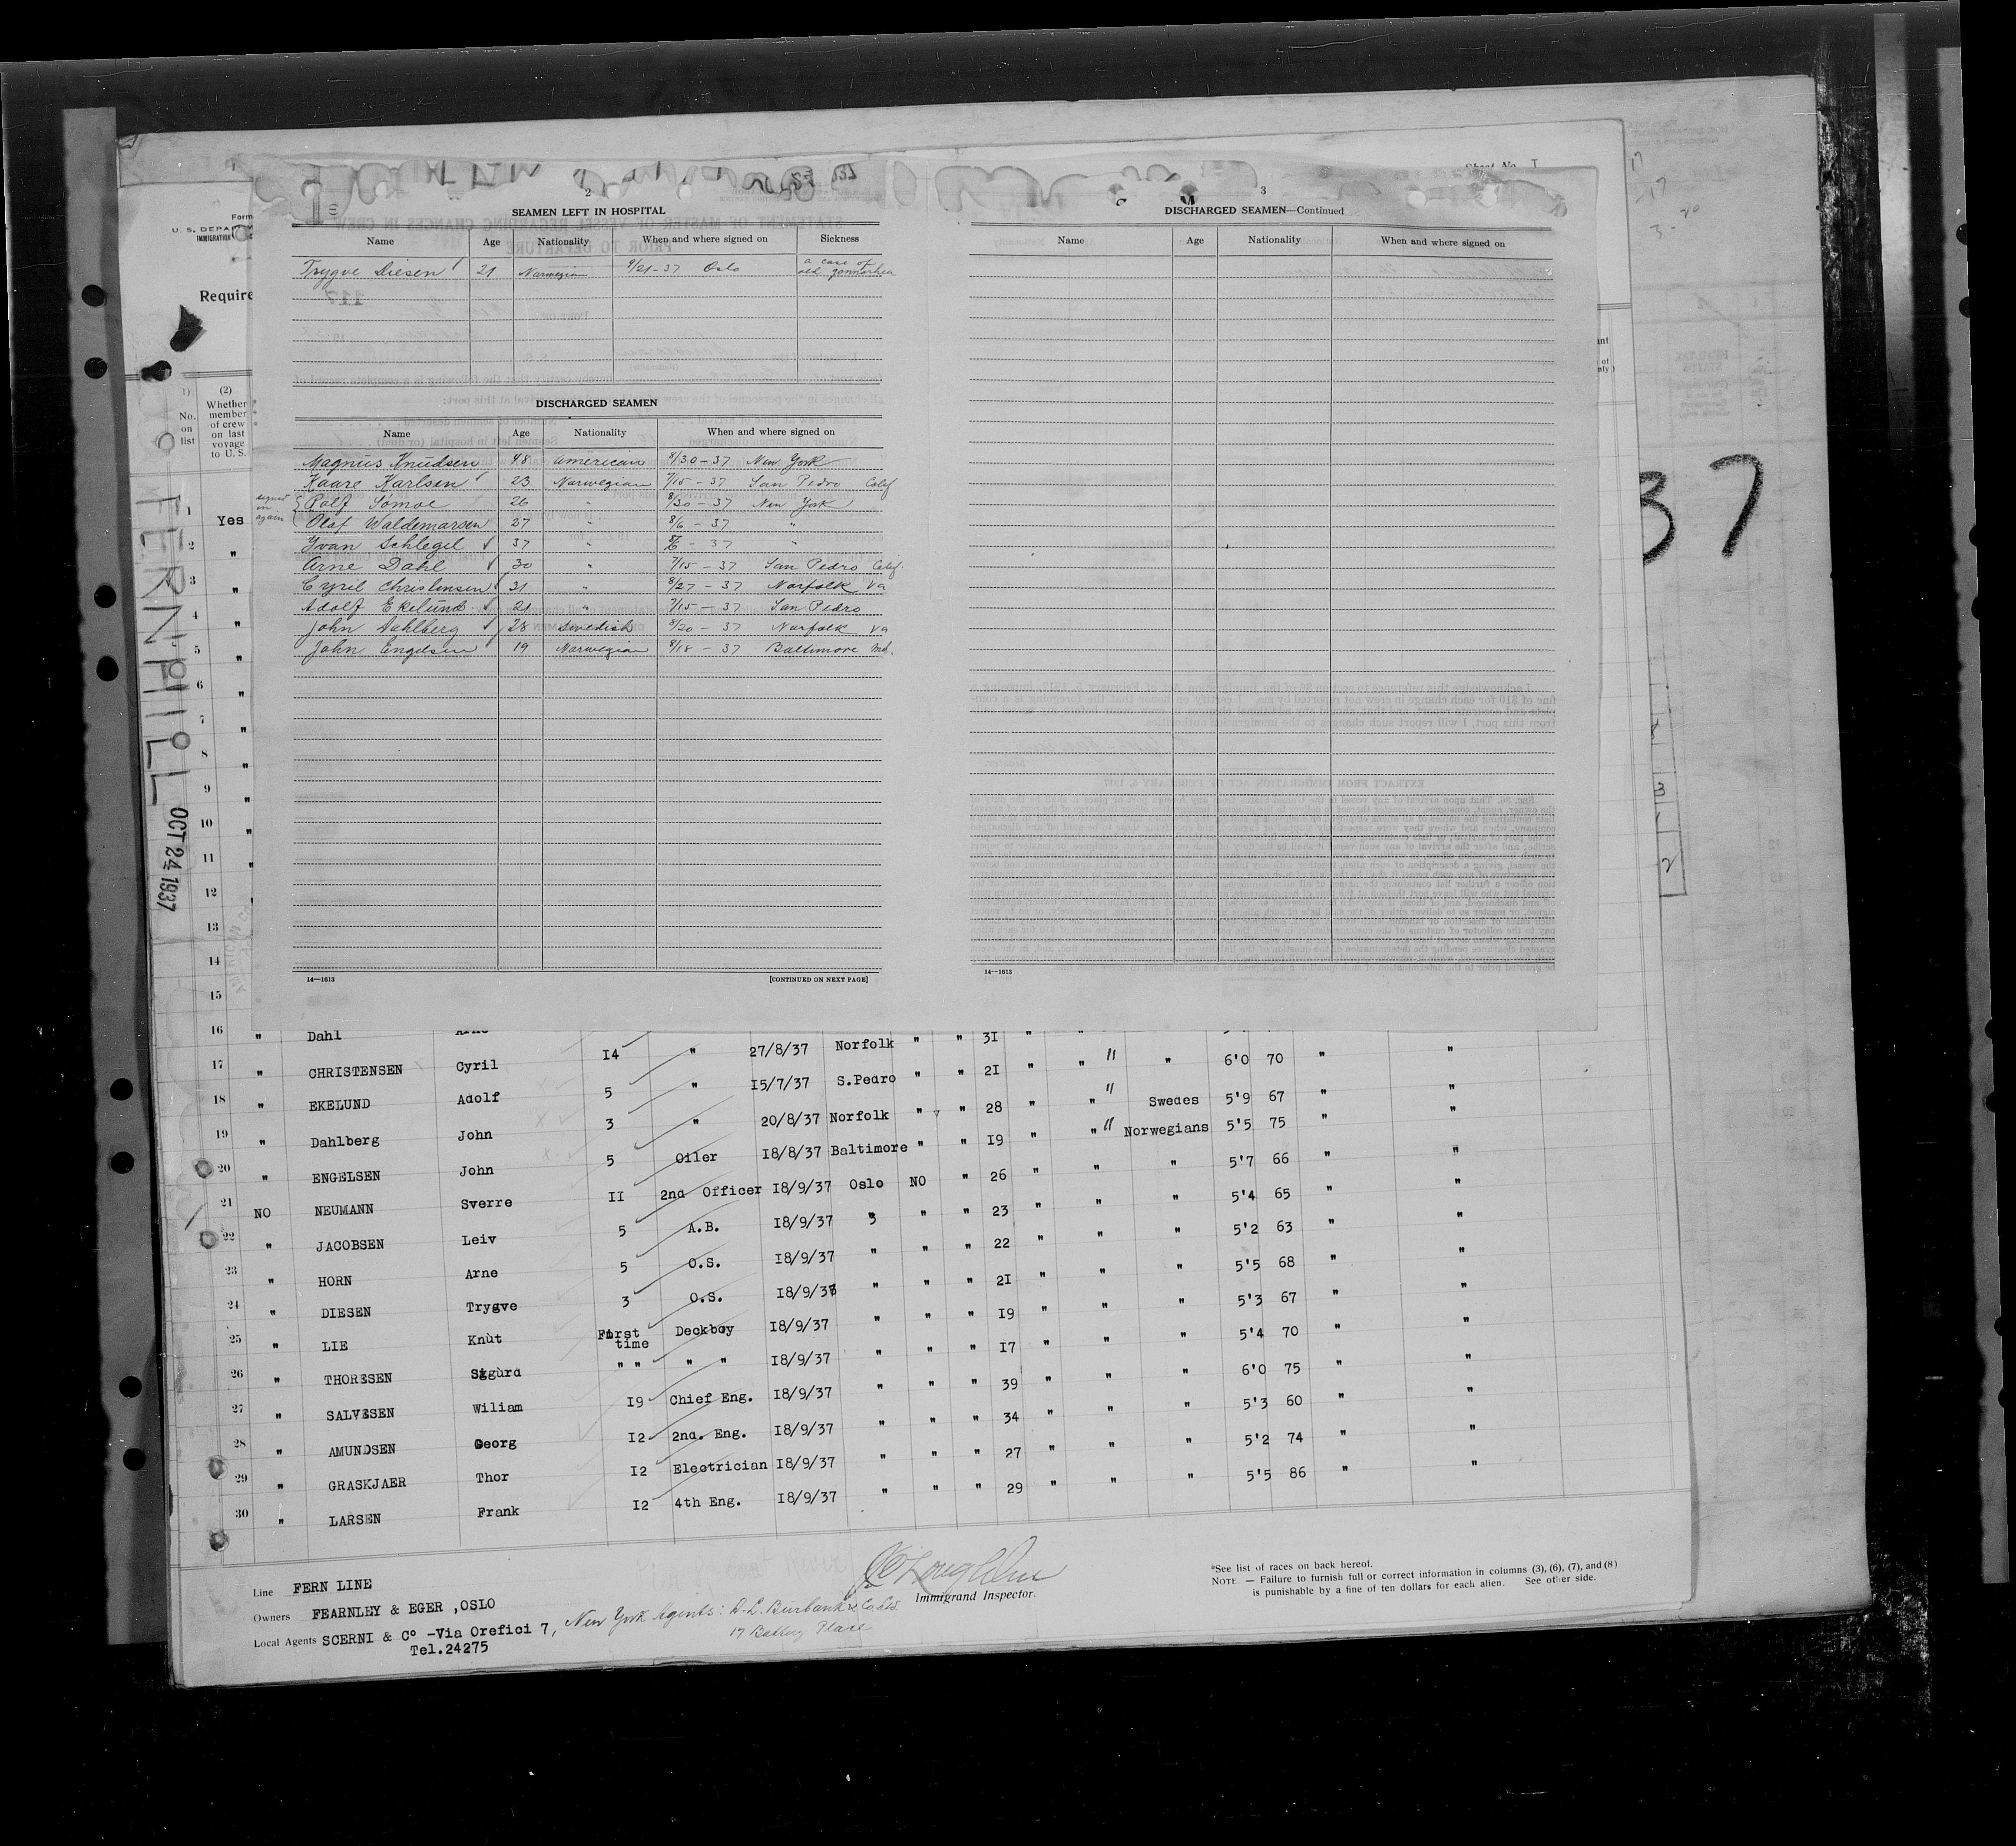 Sheet No. I
2
SEAMEN LEFT IN HOSPITAL
Name Age Nationality When and where signed on Sickness
Trygve Diesen 21 Norwegian 9/21-37 Oslo a case of old gonnorhea
DISCHARGED SEAMEN
Name Age Nationality When and where signed on
Magnus Knudsen 48 American 8/30-37 New York
Kaare Karlsen 23 Norwegian 7/15-37 San Pedro Calif
signed on again
Rolf Sömoe 26 " 8/30-37 New York
Olaf Waldemarsen 27 " 8/6-37 "
Yvan Schlegel 37 " - 37 "
Arne Dahl 30 " 7/15-37 San Pedro Calif.
Cyril Christensen 31 " 8/27-37 Norfolk Va
Adolf Ekelund 21 " 7/15-37 San Pedro
John Dahlberg 28 Swedish 8/20-37 Norfolk Va
John Engelsen 19 Norwegian 8/18-37 Baltimore Md.
14—1613 [CONTINUED ON NEXT PAGE]
3
DISCHARGED SEAMEN—Continued
Name Age Nationality When and where signed on
14—1613
Form
U. S. DEPA
IMMIGRATION
Require
37
FERNHILL
OCT 24 1937
(1) No. on list
(2) Whether member of crew on last voyage to U. S.
1 Yes
2 "
3 "
4 "
5 "
6 "
7 "
8 "
9 "
10 "
11 "
12 "
13
14
15
16 " Dahl Arne 31 " "
17 " CHRISTENSEN Cyril 14 " 27/8/37 Norfolk " " 21 " " " 6'0 70 " "
18 " EKELUND Adolf 5 " 15/7/37 S.Pedro " " 28 " " Swedes 5'9 67 " "
19 " Dahlberg John 3 " 20/8/37 Norfolk " " 19 " " Norwegians 5'5 75 " "
20 " ENGELSEN John 5 Oiler 18/8/37 Baltimore " " 26 " " " 5'7 66 " "
21 NO NEUMANN Sverre II 2nd Officer 18/9/37 Oslo NO " 23 " " " 5'4 65 " "
22 " JACOBSEN Leiv 5 A.B. 18/9/37 " " " 22 " " " 5'2 63 " "
23 " HORN Arne 5 O.S. 18/9/37 " " " 21 " " " 5'5 68 " "
24 " DIESEN Trygve 3 O.S. 18/9/37 " " " 19 " " " 5'3 67 " "
25 " LIE Knùt First time Deckboy 18/9/37 " " " 17 " " " 5'4 70 " "
26 " THORESEN Sigùrd " " " " 18/9/37 " " " 39 " " " 6'0 75 " "
27 " SALVESEN Wiliam 19 Chief Eng. 18/9/37 " " " 34 " " " 5'3 60 " "
28 " AMUNDSEN Georg 12 2nd. Eng. 18/9/37 " " " 27 " " " 5'2 74 " "
29 " GRASKJAER Thor 12 Electrician 18/9/37 " " " 29 " " " 5'5 86 " "
30 " LARSEN Frank 12 4th Eng. 18/9/37
Line FERN LINE
Owners FEARNLEY & EGER ,OSLO
Local Agents SCERNI & C° -Via Orefici 7, New York Agents: A.L. Burbank & Co. Ltd
Tel.24275 17 Battery Place
Immigrand Inspector.
*See list of races on back hereof.
NOTE. — Failure to furnish full or correct information in columns (3), (6), (7), and (8)
is punishable by a fine of ten dollars for each alien. See other side.